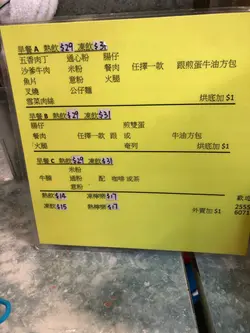 早餐 A 熱飲$29 凍飲$31
五香肉丁 通心粉 腸仔
沙爹牛肉 米粉 餐肉 任擇一款 跟煎蛋牛油方包
魚片 意粉 火腿
叉燒 公仔麵
雪菜肉絲 烘底加 $1
早餐 B 熱飲$29 凍飲$31
腸仔 煎雙蛋
餐肉 任擇一款 跟 或 牛油方包
火腿 奄列 烘底加 $1
早餐 C 熱飲$29 凍飲$31
米粉
牛腩 通心粉 配 咖啡 或茶
意粉
熱飲$14 凍檸樂$17
凍飲$15 熱檸樂$17 外賣加 $1
2555
6071